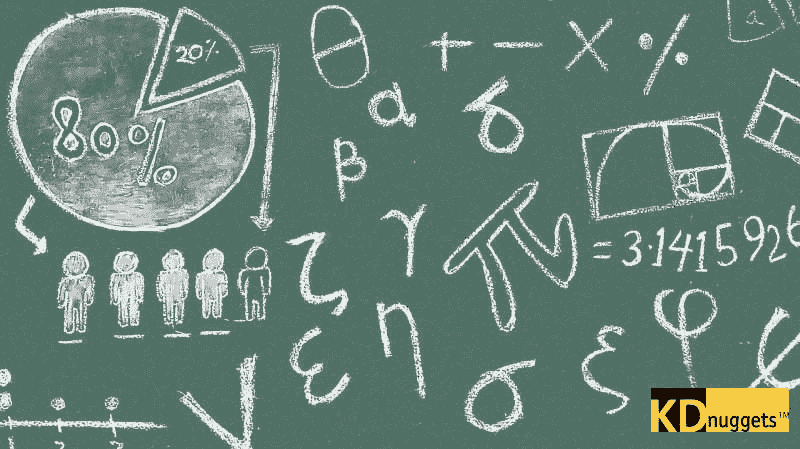 20%
80%
θ
+ − × %
a
α
δ
β
γ
π = 3.1415926
ζ
η
ε
σ
ξ
φ
KDnuggets™